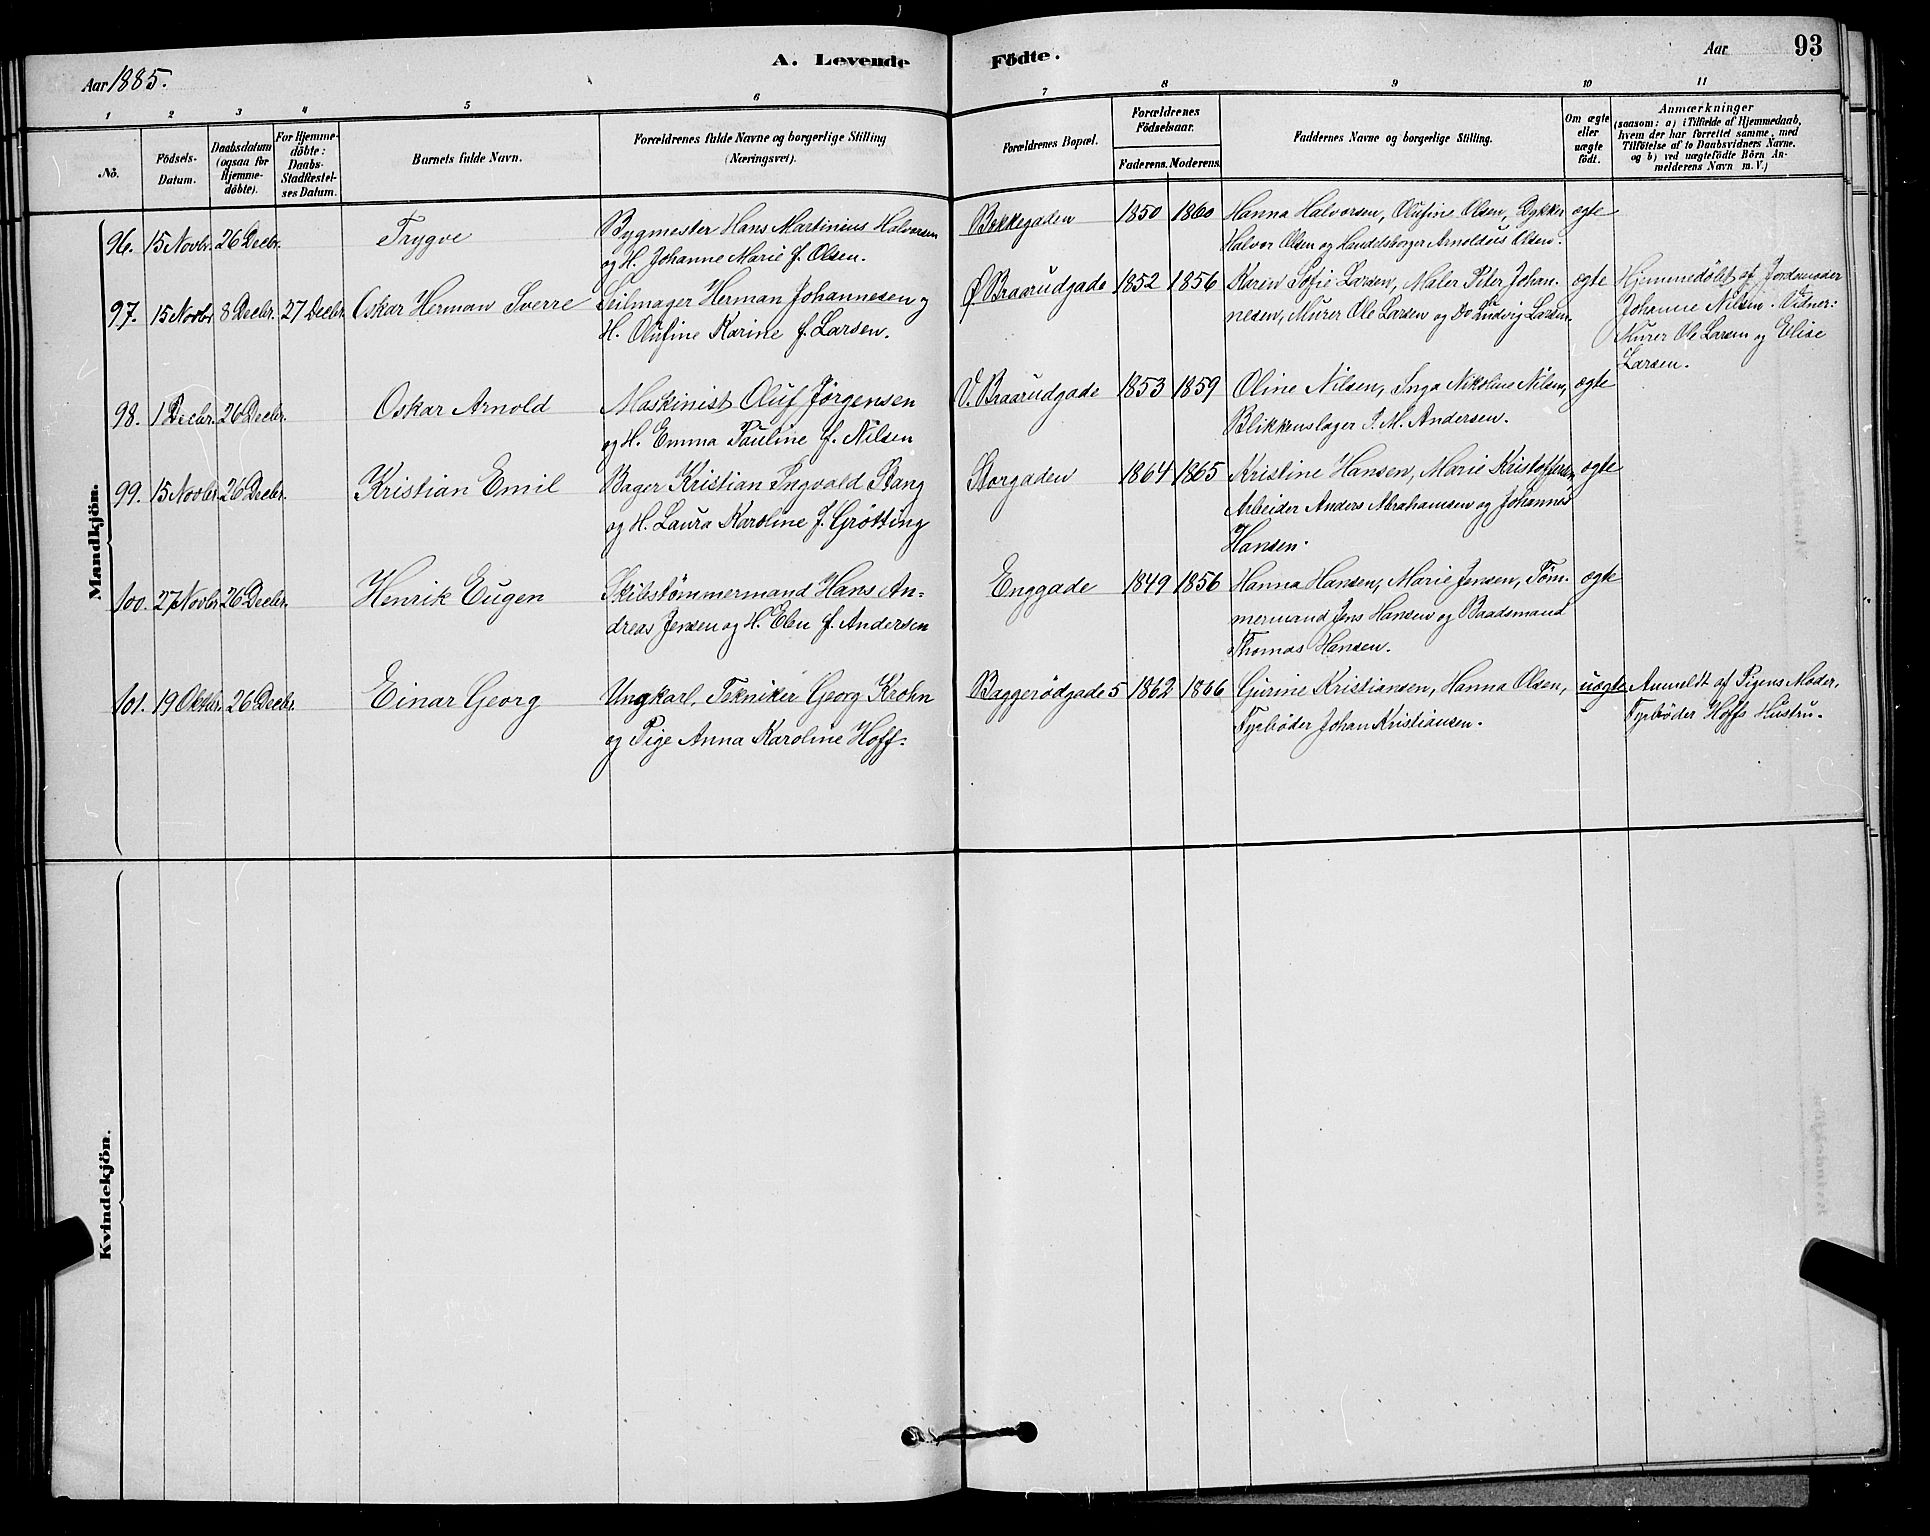 A. Levende Födte.
Aar 1885.
Aar 93
1 2 3 4 5 6 7 8 9 10 11
No.
Födsels-Datum.
Daabsdatum (ogsaa for Hjemme-döbte).
For Hjemme-döbte: Daabs-Stadfæstel-ses Datum.
Barnets fulde Navn.
Forældrenes fulde Navne og borgerlige Stilling (Næringsvei).
Forældrenes Bopæl.
Forældrenes Födselsaar.
Faderens. Moderens.
Faddernes Navne og borgerlige Stilling.
Om ægte eller uægte födt.
Anmærkninger
(saasom: a) i Tilfælde af Hjemmedaab,
hvem der har forrettet samme, med
Tilföielse af to Daabsvidners Navne.
og b) ved uægtefödte Börn An-
melderens Navn m. V.)
Mandkjön.
96. 15 Novbr. 26 Decbr. Trygve
Bygmester Hans Martinius Halvorsen
og H. Johanne Marie f. Olsen.
Bakkegaden 1850 1860
Hanna Halvorsen, Olufine Olsen, Dykker
Halvor Olsen og Handelsborger Arnoldus Olsen.
ægte
97. 15 Novbr 8 Decbr. 27 Decbr. Oskar Herman Sverre
Seilmager Herman Johannesen og
H. Olufine Karine f. Larsen.
Ø. Braarudgade 1852 1856
Karen Sofie Larsen, Maler Peter Johan-
nesen, Murer Ole Larsen og Do Ludvig Larsen.
ægte
Hjemmedöbt af Jordmoder
Johanne Nilsen. Vidner:
Murer Ole Larsen og Elise
Larsen.
98. 1 Decbr. 26 Decbr. Oskar Arnold
Maskinist Oluf Jörgensen
og H. Emma Pauline f. Nilsen
V. Braarudgade 1853 1859
Oline Nilsen, Inga Nikoline Nilsen,
Blikkenslager J. M. Andersen.
ægte
99. 15 Novbr. 26 Decbr. Kristian Emil
Bager Kristian Ingvald Stang
og H. Laura Karoline f. Grötting
Storgaden 1864 1865
Kristine Hansen, Marie Kristoffersen,
Arbeider Anders Abrahamsen og Johannes
Hansen.
ægte
100. 27 Novbr 26 Decbr. Henrik Eugen
Skibstömmermand Hans An-
dreas Jensen og H. Elen f. Andersen
Enggade 1849 1856
Hanna Hansen, Marie Jensen, Töm-
mermand Jens Hansen og Baadsmand
Thomas Hansen.
ægte
101. 19 Oktbr. 26 Decbr. Einar Georg
Ungkarl, Tekniker Georg Krohn
og Pige Anna Karoline Hoff.
Baggerödgade 5 1862 1866
Gurine Kristiansen, Hanna Olsen,
Fyrböder Johan Kristiansen.
uægte
Anmeldt af Pigens Moder,
Fyrböder Hoffs Hustru.
Kvindekjön.